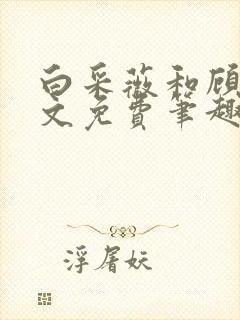 白采薇和顾
文免费笔趣
浮屠妖